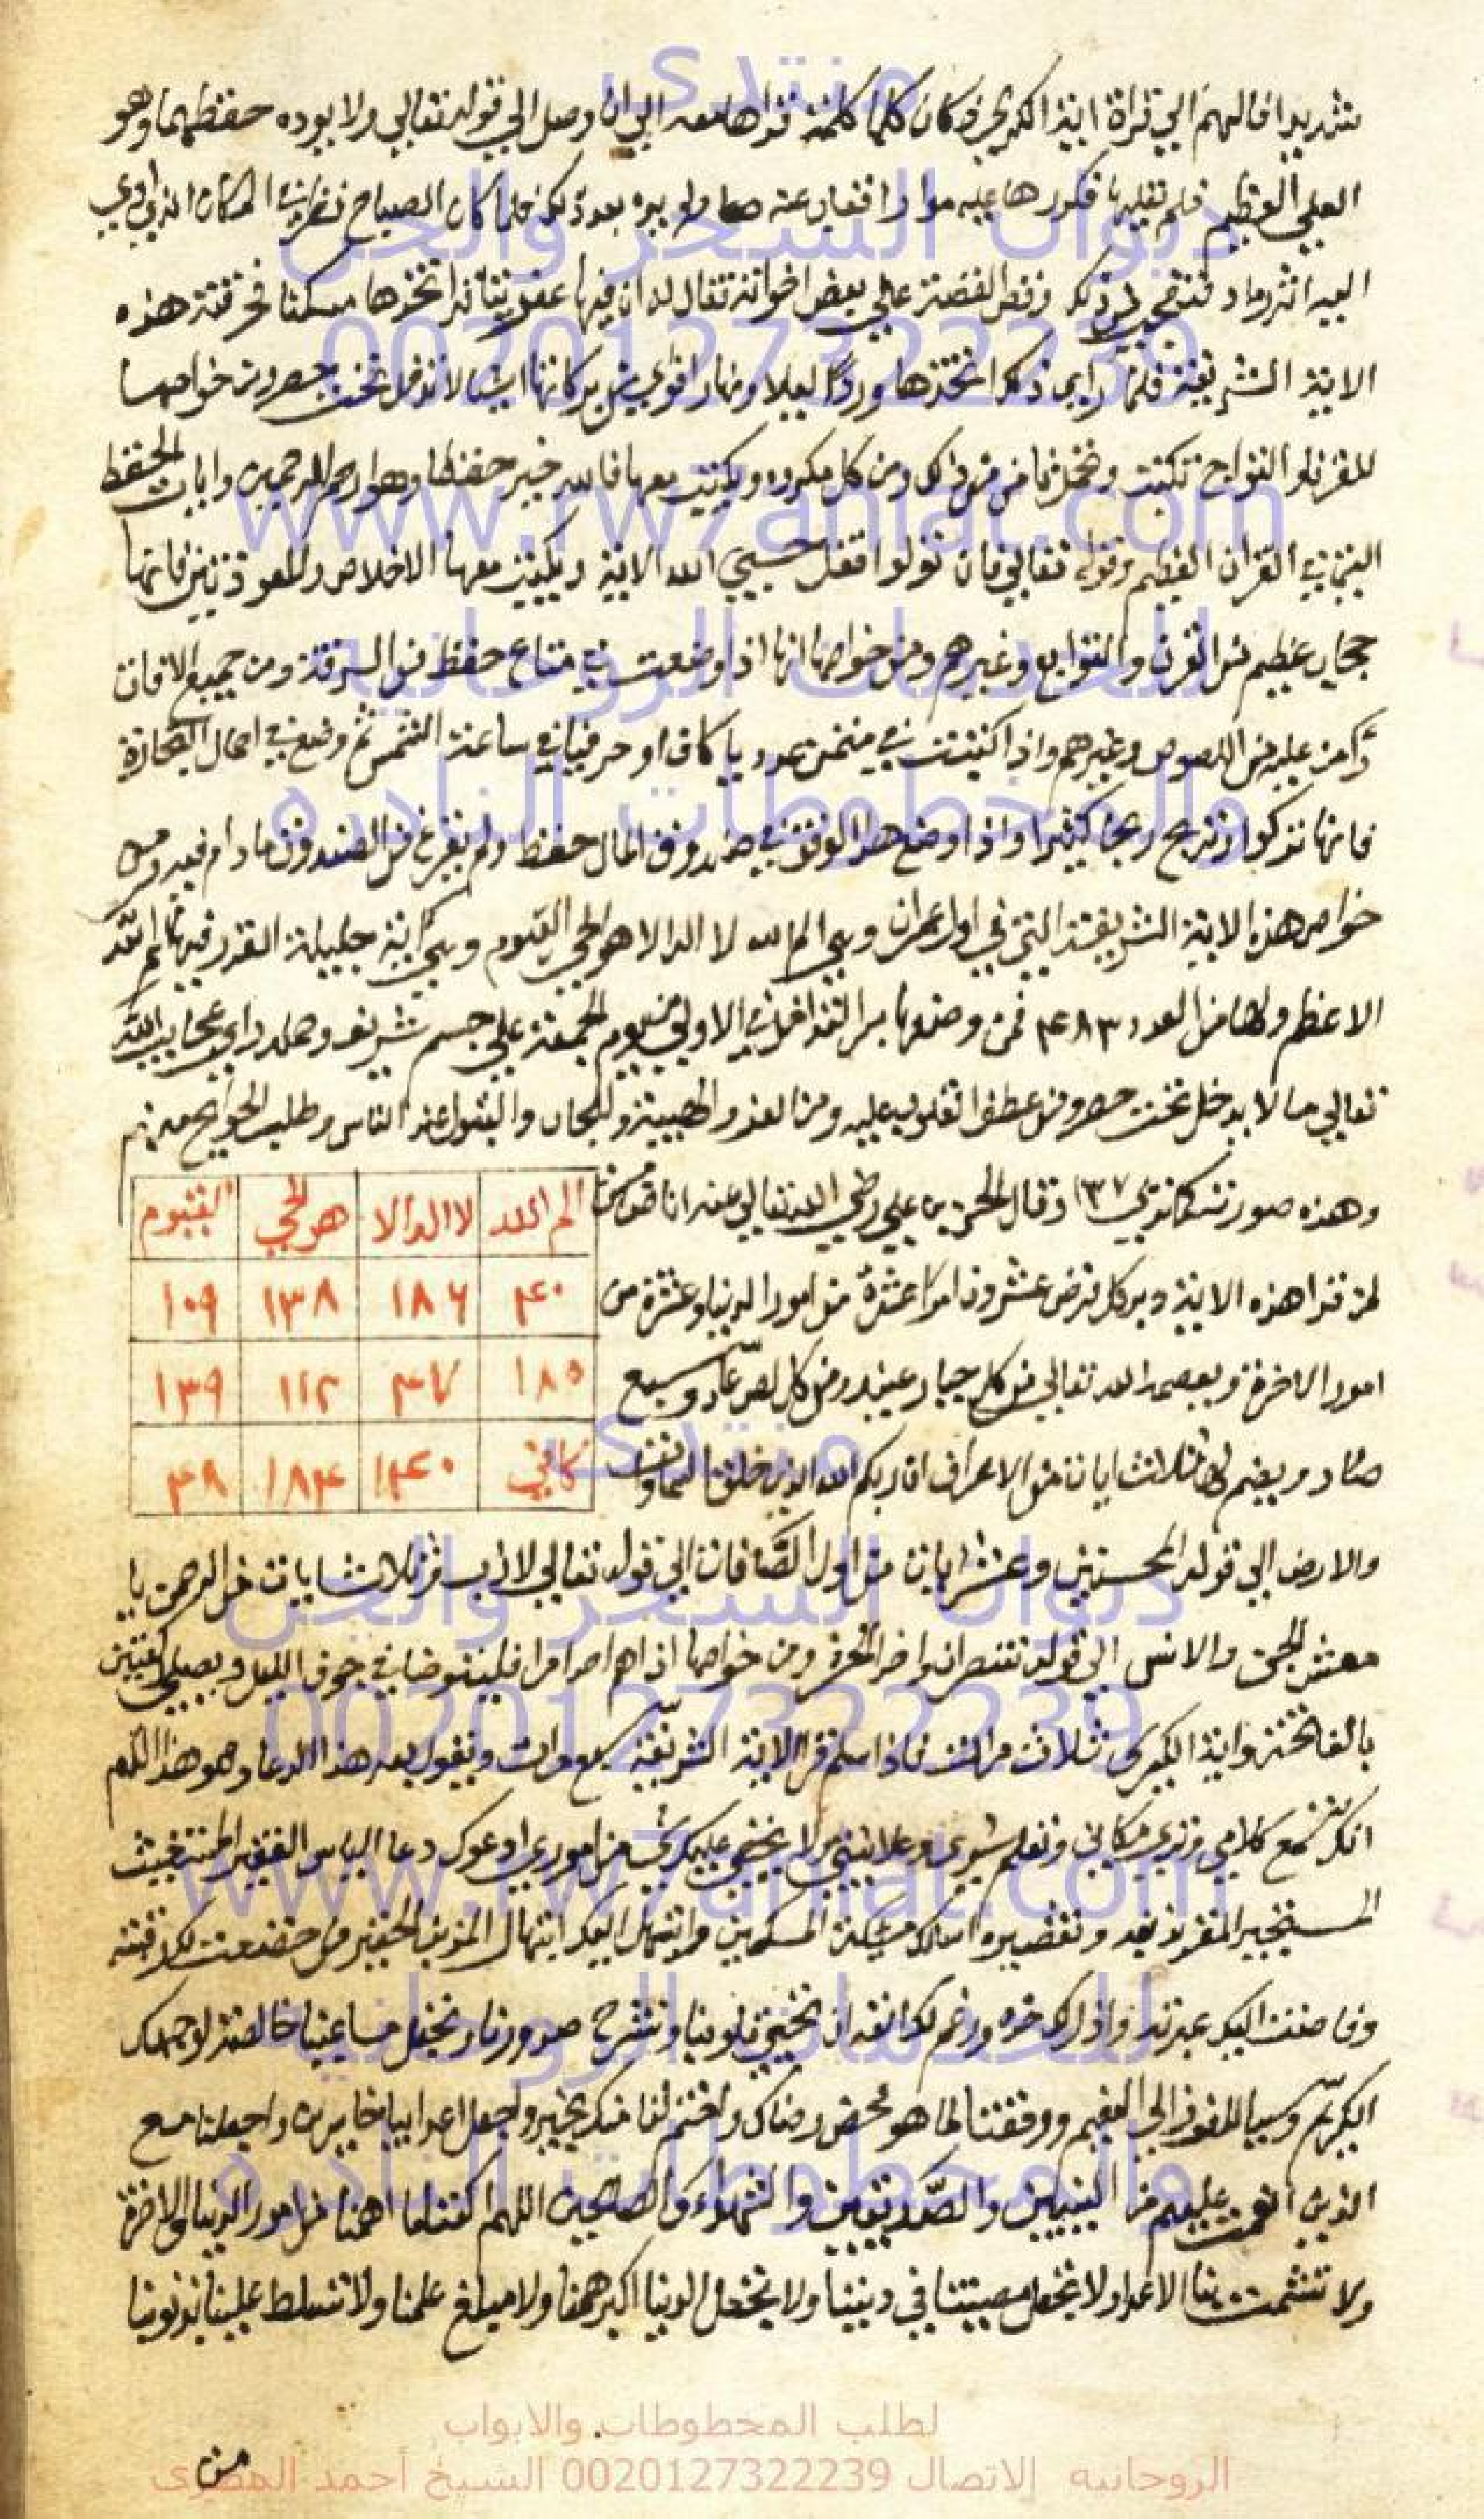 شديدا فالهم الي قراة اية الكرسي وكان كلما كلمة قراها معه الي ان وصل الي قوله تعالي ولا يوده حفظهما وهو
العلي العظيم فلم يقلها فكررها عليه مرارا فغاب عنه ولم يره بعد ذلك فلما كان الصباح نظر الي المكان الذي اوي
اليه اثر رماد فتعجب من ذلك وقص القصة علي بعض اخوانه فقال له ان فيها عفريتا قد اتخذها مسكنا فحرقته هذه
الاية الشريفة فلما راي ذلك اتخذها وردا ليلا ونهارا فراي من بركاتها اشيا لا تدخل تحت حصر ومن خواصها
للقرنا والتوابع تكتب وتحمل من ذلك ومن كل مكروه ويكتب معها فالله خير حفظا وهو ارحم الراحمين وايات الحفظ
التي في القران العظيم وقوله تعالي فان تولوا فقل حسبي الله الاية ويكتب معها الاخلاص والمعوذتين فانها
حجاب عظيم من القرنا والتوابع وغيرهم ومن خواصها انها اذا وضعت في متاع حفظ من السرقة ومن جميع الافات
وامن عليه من اللصوص وغيرهم واذا كتبت في مخمس عدديا كان او حرفيا في ساعة الشمس ثم وضع في احمال التجارة
فانها تزكوا وتربح ربحا كثيرا واذا وضع هذا الوفق في صندوق المال حفظ ولم يفرغ من الصندوق ما دام فيه ومن
خواص هذه الاية الشريفة التي في اول عمران وهي الم الله لا اله الا هو الحي القيوم وهي اية جليلة القدر فيها اسم الله
الاعظم ولها من العدد ٤٨٣ فمن وضعها مربعا في الاولي من يوم الجمعة علي جسم شريف وحمله راي من عجايب الله
تعالي ما لا يدخل تحت حصر ومن عطف القلوب عليه ومن العز والهيبة والجاه والقبول عند الناس وطلب الحوايج منهم
وهذه صورته كما تري ١٣٧ وقال الحسن بن علي رضي الله تعالي عنه انا ضامن
لمن قرا هذه الاية دبر كل فرض عشرون امرا عشرة من امور الدنيا وعشرة من
امور الاخرة ويعصمه الله تعالي من كل جبار عنيد ومن كل لص عاد وسبع
ضار ويضم لها ثلاث ايات من الاعراف ان ربكم الله الذي خلق السموات
الم الله | لا اله الا | هو الحي | القيوم
٤٠ | ١٨٦ | ١٣٨ | ١٠٩
١٨٥ | ٣٧ | ١١٢ | ١٣٩
كافي | ١٤٠ | ١٨٤ | ٣٨
والارض الي قوله المحسنين وعشر ايات من اول الصافات الي قوله تعالي لازب وثلاث ايات من الرحمن يا
معشر الجن والانس الي قوله تنتصران واخر الحشر ومن خواصها اذا اهم احد امرا فليتوضا في جوف الليل ويصلي ركعتين
بالفاتحة واية الكرسي ثلاث مرات فاذا سلم قرا الاية الشريفة سبع مرات ويقول بعد هذا الدعا وهو هذا اللهم
انك تسمع كلامي وتري مكاني وتعلم سري وعلانيتي ولا يخفي عليك شي من اموري ادعوك دعا البايس الفقير المستغيث
المستجير المقر بذنبه وتقصيره اسالك مسالة المسكين وابتهل اليك ابتهال المذنب الحقير من خضعت لك رقبته
وفاضت اليك عبرته وذل لك خده ورغم لك انفه ان تحيي قلوبنا وتشرح صدورنا وتجعل مساعينا خالصة لوجهك
الكريم وسببا للفوز الي النعيم ووفقنا لما هو محض رضاك واختم لنا منك بخير واجعل اعداينا خايبين واجعلنا مع
الذين انعمت عليهم من النبيين والصديقين والشهداء والصالحين اللهم اكفنا ما اهمنا من امور الدنيا والاخرة
ولا تشمت بنا الاعدا ولا تجعل مصيبتنا في ديننا ولا تجعل الدنيا اكبر همنا ولا مبلغ علمنا ولا تسلط علينا بذنوبنا
من
منتدى
ديوان السحر والجن
0020127322239
www.rw7aniat.com
للخدمات الروحانية
والمخطوطات النادره
منتدى
ديوان السحر والجن
0020127322239
www.rw7aniat.com
للخدمات الروحانية
والمخطوطات النادره
لطلب المخطوطات والابواب
الروحانيه الاتصال 0020127322239 الشيخ أحمد المصرى